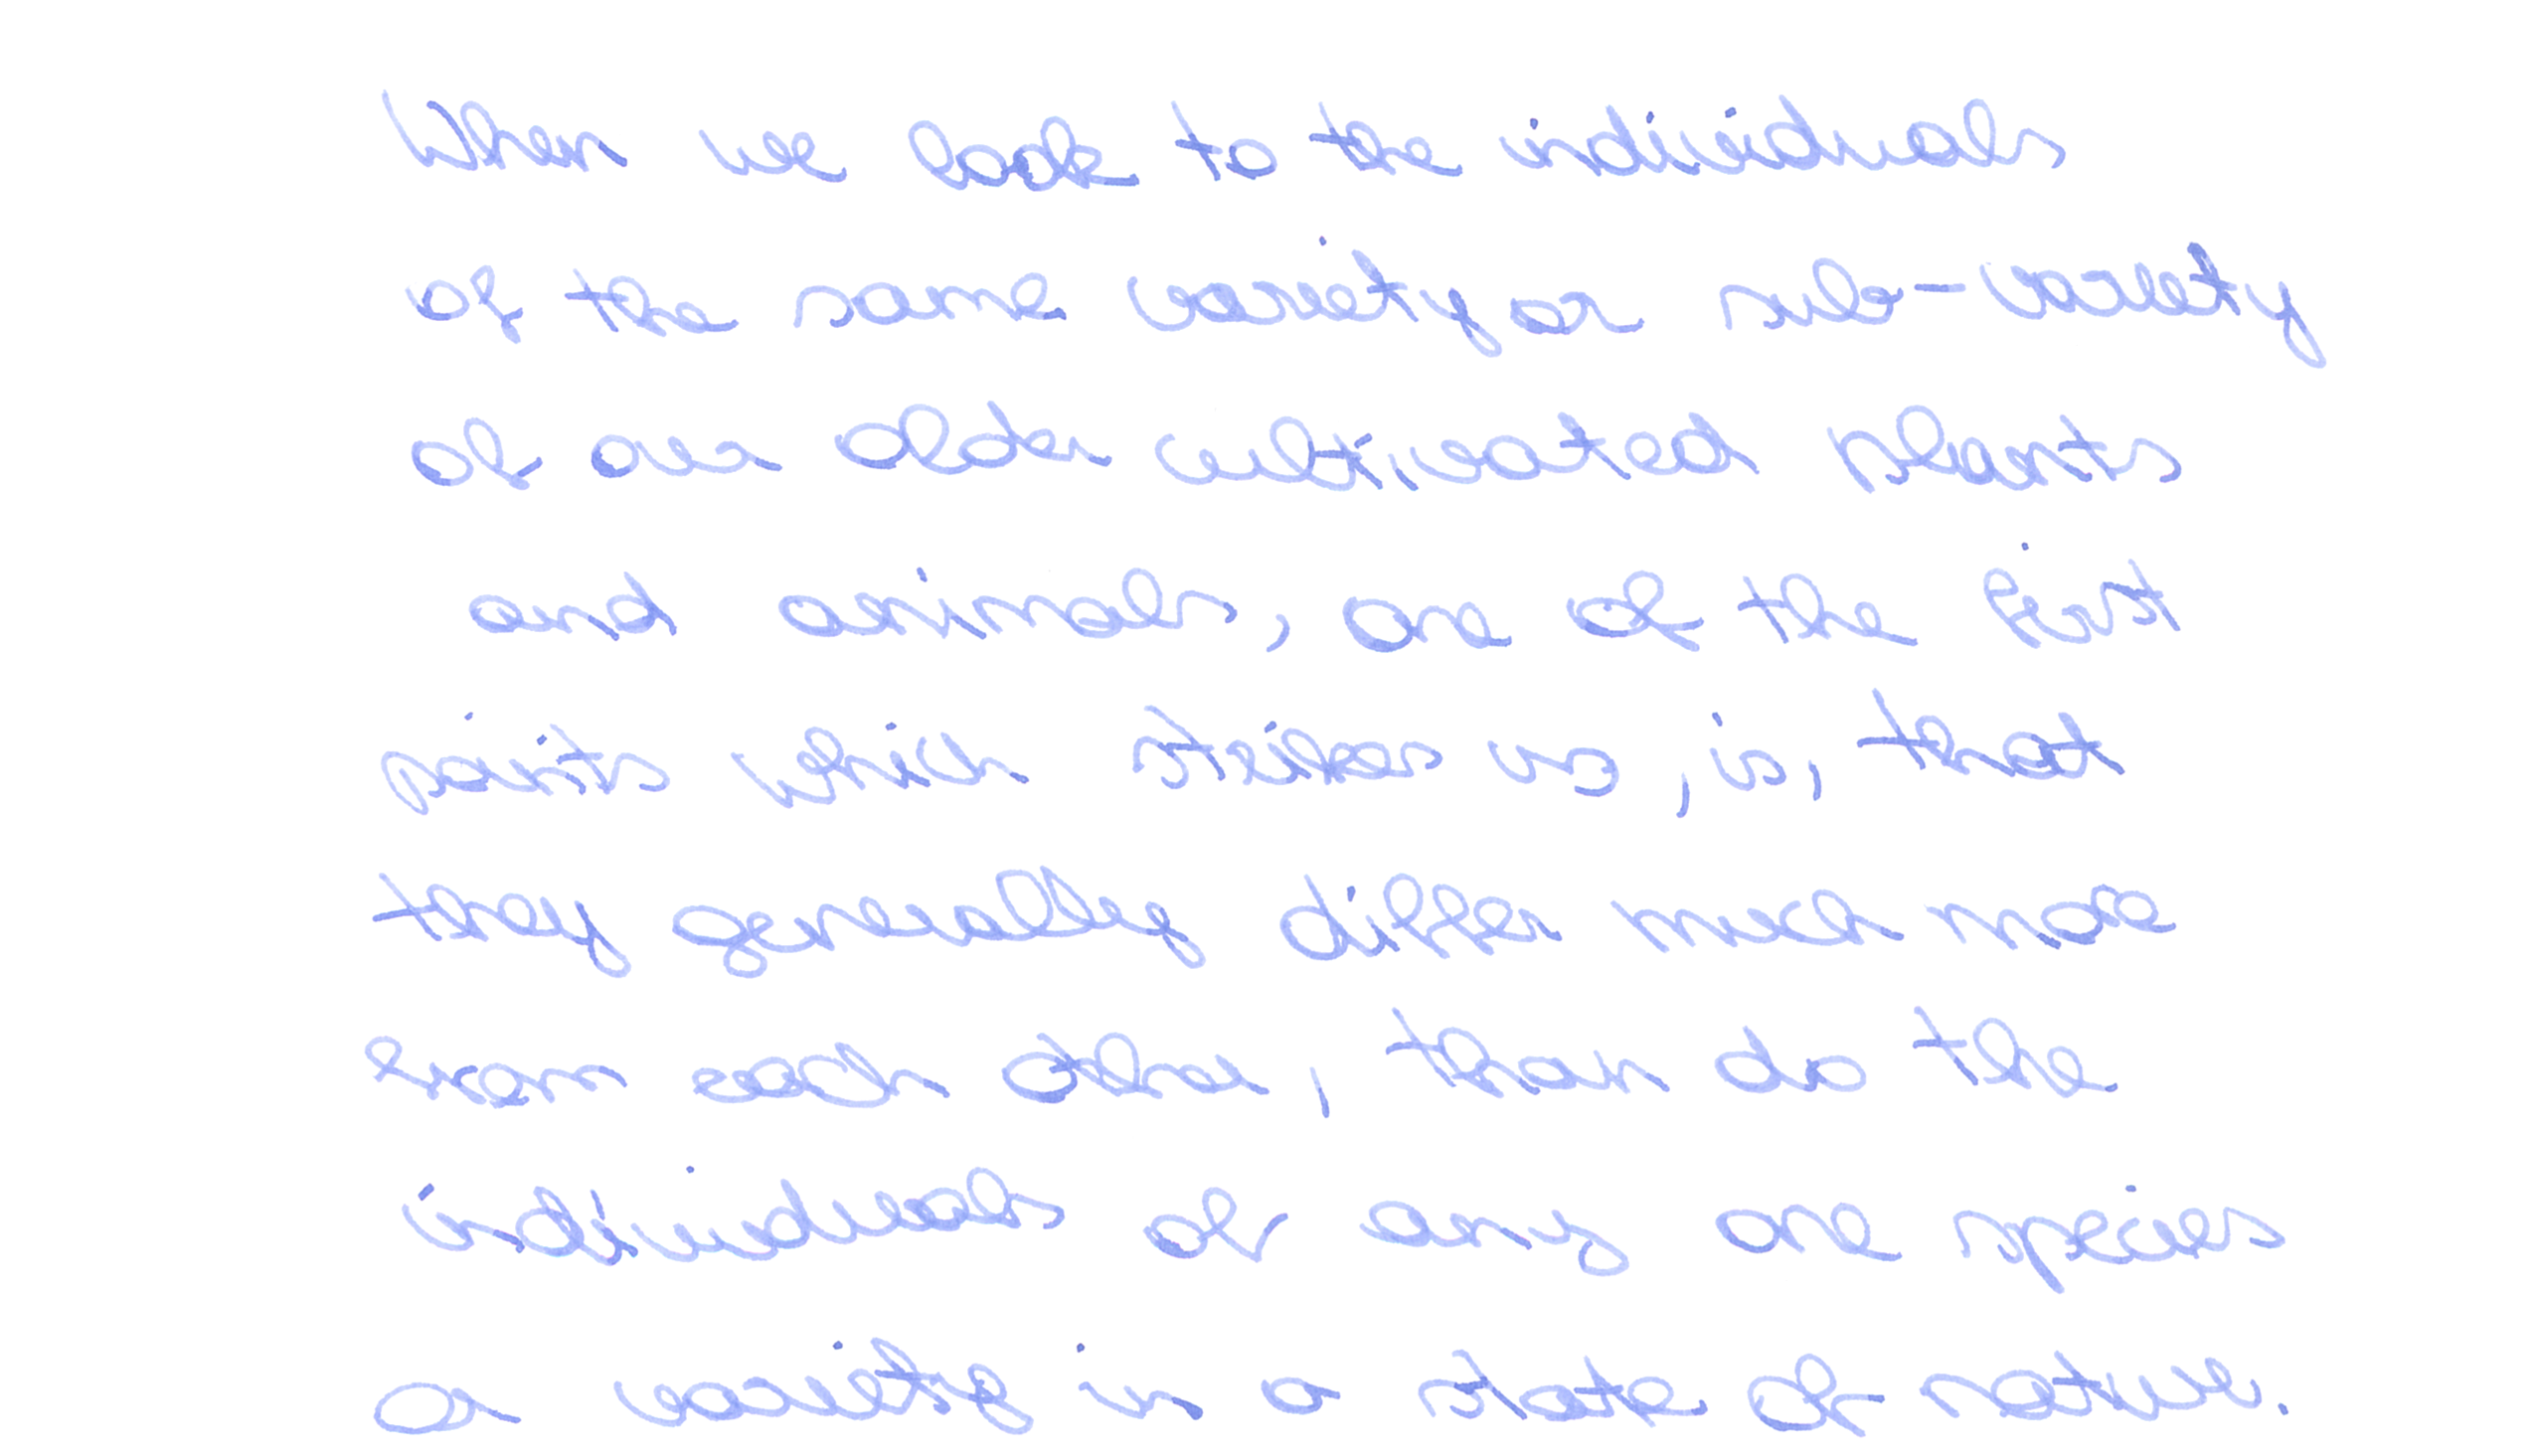 When we look to the individuals
of the same variety or sub-variety
of our older cultivated plants
and animals, one of the first
points which strikes us, is, that
they generally differ much more
from each other, than do the
individuals of any one species
or variety in a state of nature.